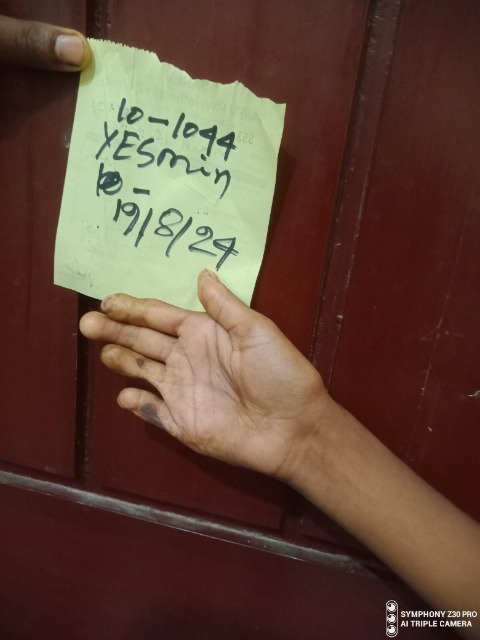 10-1044
YESmin
19/8/24
SYMPHONY Z30 PRO
AI TRIPLE CAMERA